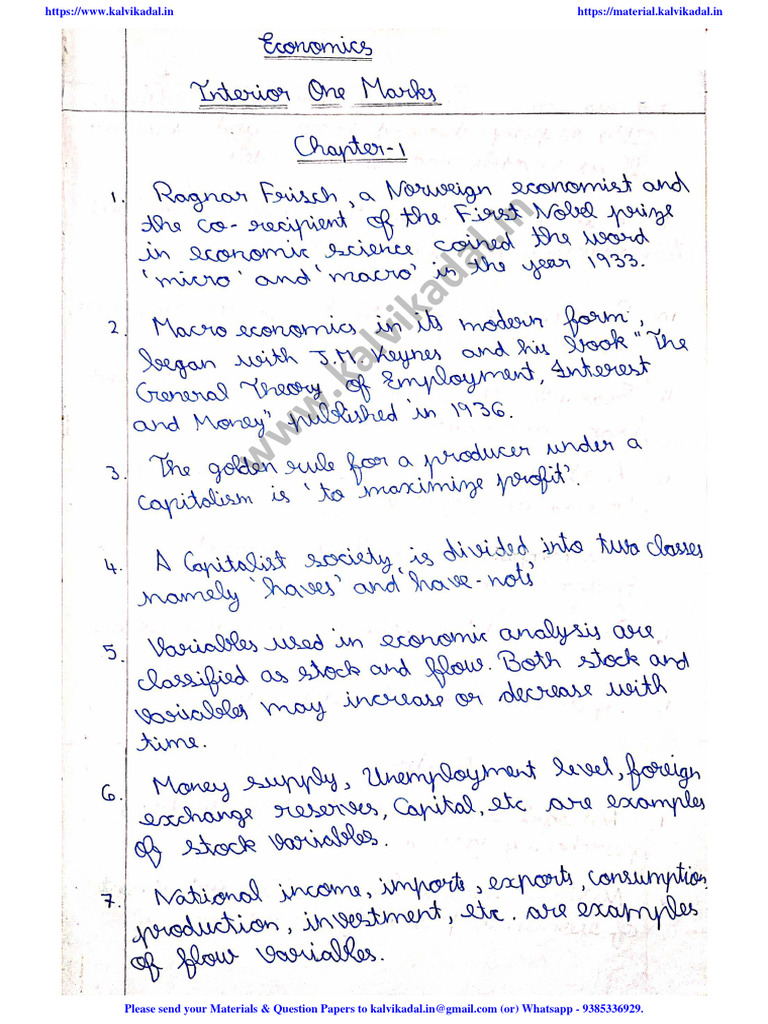 https://www.kalvikadal.in https://material.kalvikadal.in
Economics
Interior One Marks
Chapter-1
1. Ragnar Frisch, a Norweign economist and
the co-recipient of the First Nobel prize
in economic science coined the word
'micro' and 'macro' in the year 1933.
2. Macro economics in its modern form,
began with J.M. Keynes and his book "The
General Theory of Employment, Interest
and Money" published in 1936.
3. The golden rule for a producer under a
capitalism is 'to maximize profit'.
4. A Capitalist society is divided into two classes
namely 'haves' and 'have-nots'
5. Variables used in economic analysis are
classified as stock and flow. Both stock and
variables may increase or decrease with
time.
6. Money supply, Unemployment level, foreign
exchange reserves, Capital, etc are examples
of stock variables.
7. National income, imports, exports, consumption,
production, investment, etc. are examples
of flow variables.
www.kalvikadal.in
Please send your Materials & Question Papers to kalvikadal.in@gmail.com (or) Whatsapp - 9385336929.